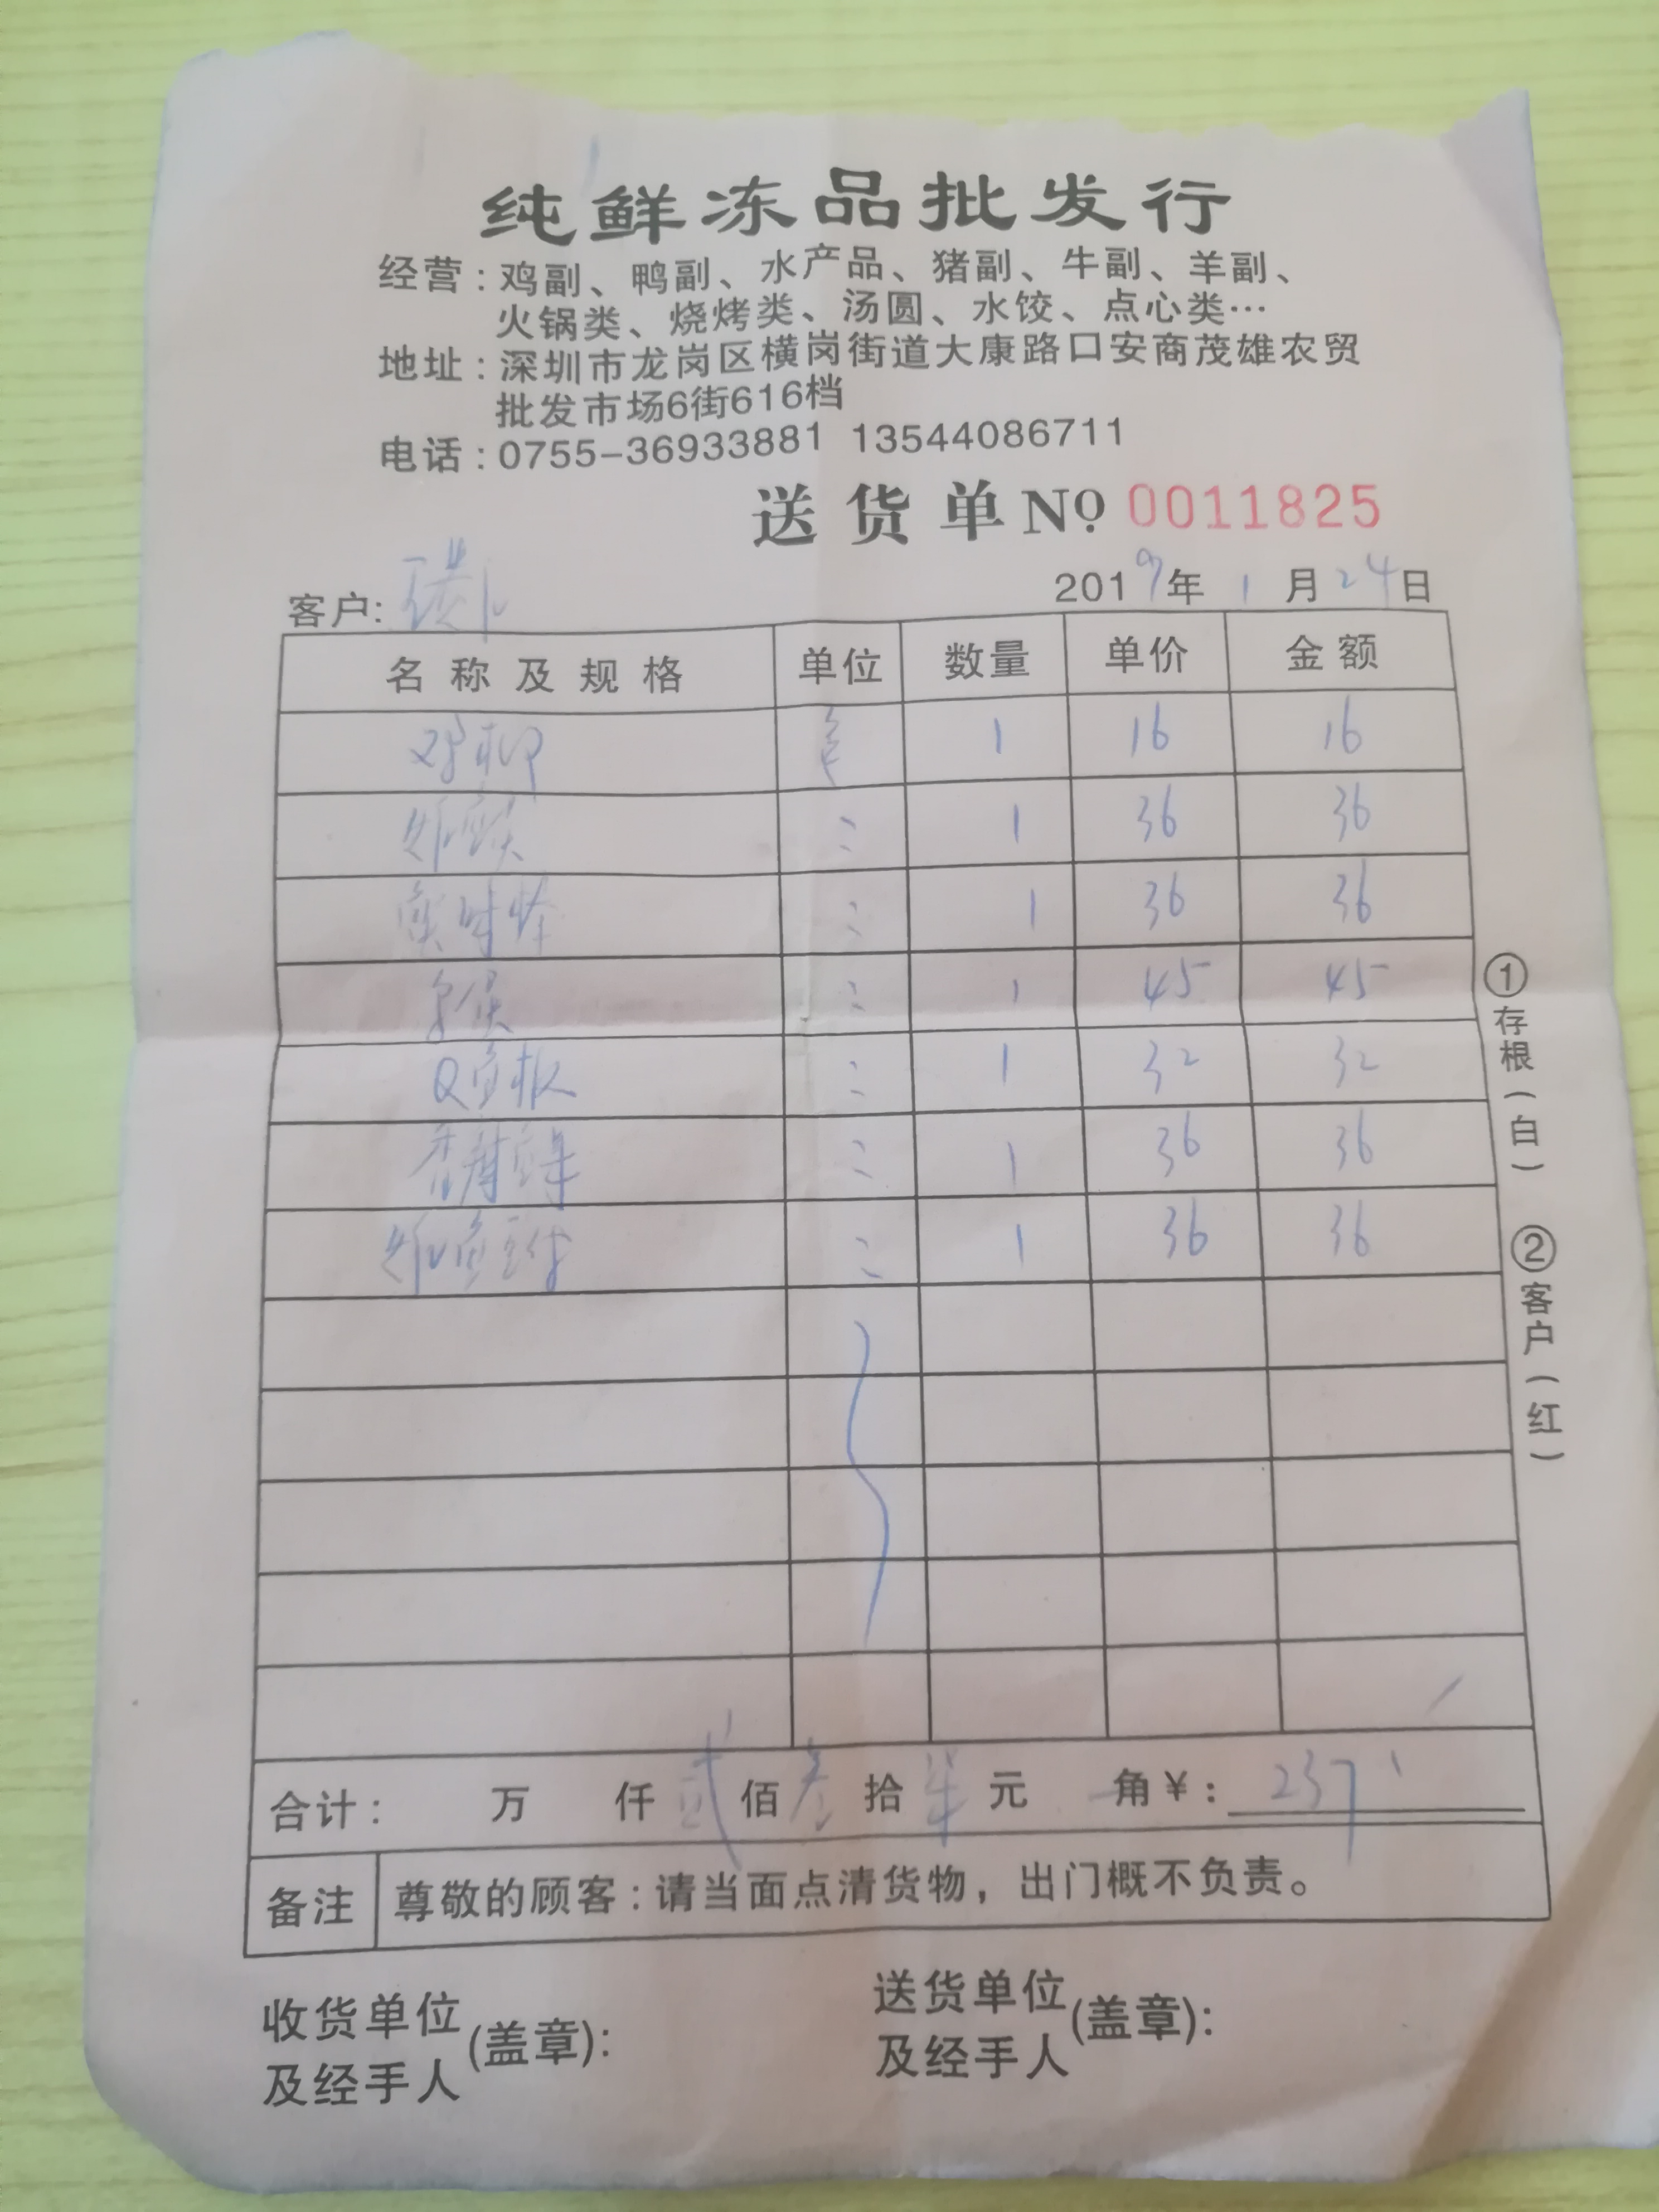 纯鲜冻品批发行
经营:鸡副、鸭副、水产品、猪副、牛副、羊副、
火锅类、烧烤类、汤圆、水饺、点心类…
地址:深圳市龙岗区横岗街道大康路口安商茂雄农贸
批发市场6街616档
电话:0755-36933881 13544086711
送货单 Nº 0011825
客户: 2019年 1月24日
名称及规格 单位 数量 单价 金额
鸡柳 1 16 16
1 36 36
1 36 36
1 45 45
Q鱼板 1 32 32
1 36 36
1 36 36
合计: 万 仟 贰佰叁拾柒元 角¥: 237
备注 尊敬的顾客:请当面点清货物,出门概不负责。
收货单位及经手人(盖章): 送货单位及经手人(盖章):
①存根(白) ②客户(红)